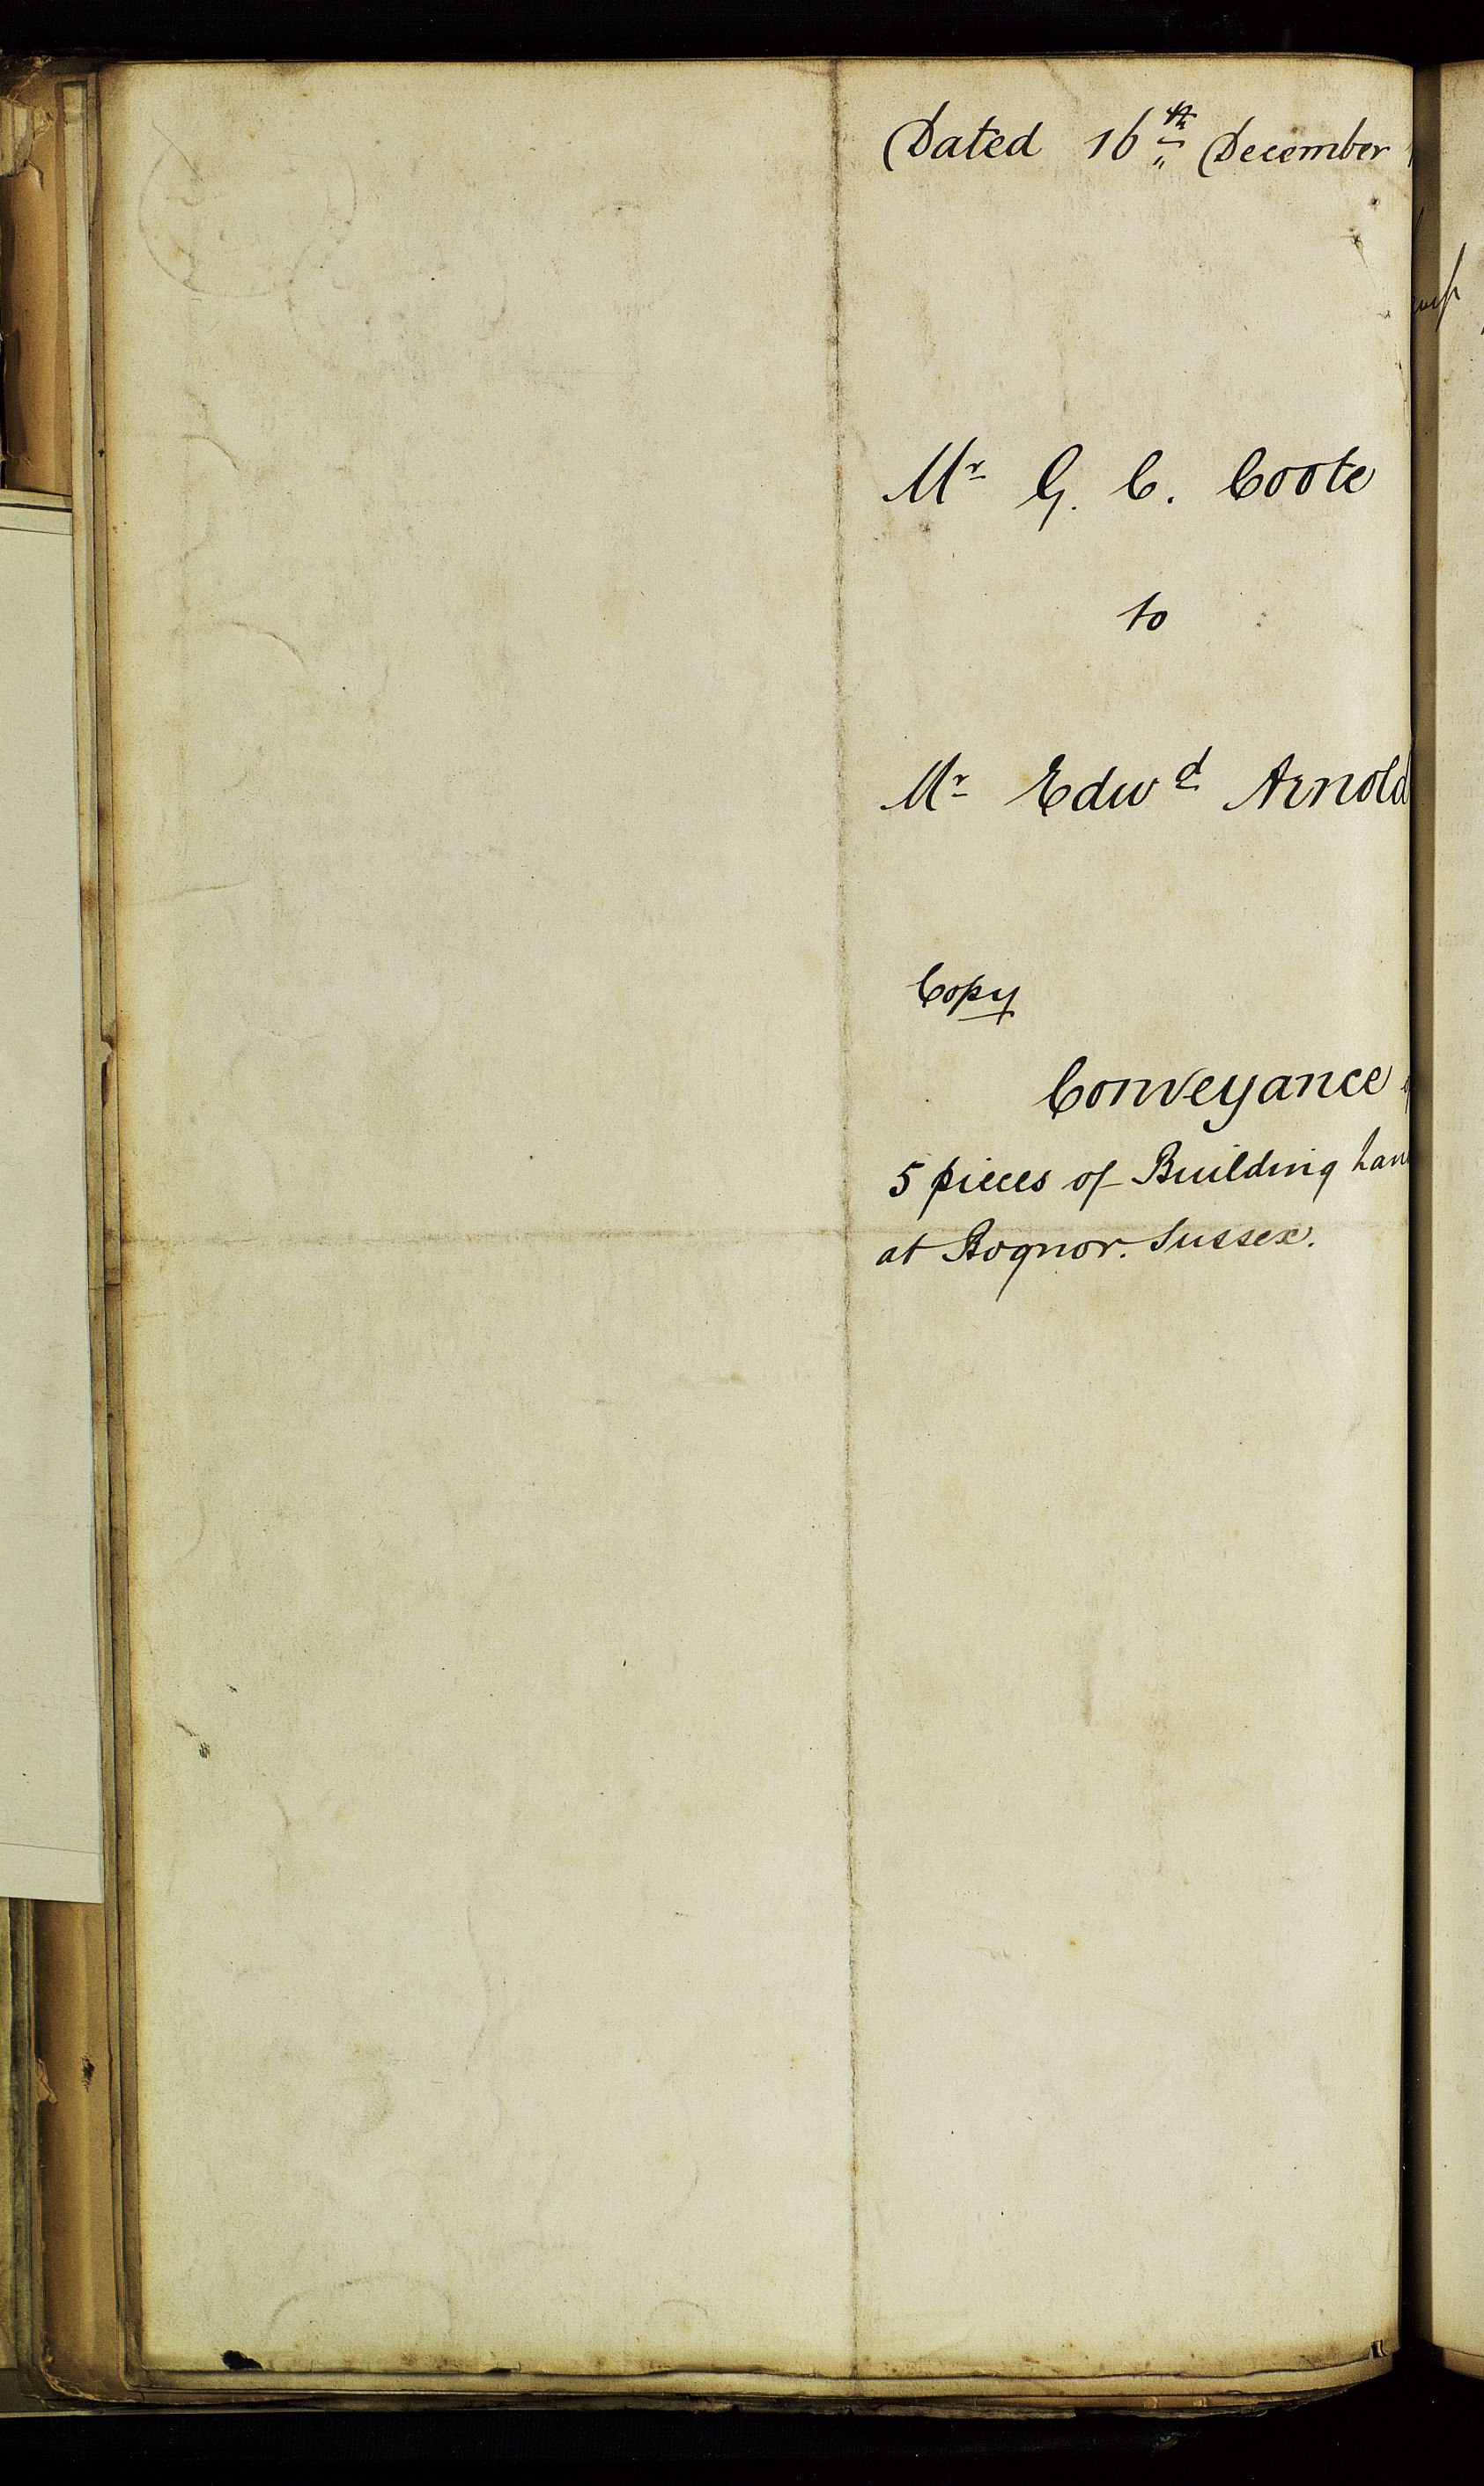 Dated 16th December
Mr G. C. Coote
to
Mr Edwd Arnold
Copy
Conveyance
5 pieces of Building Lan
at Bognor. Sussex.